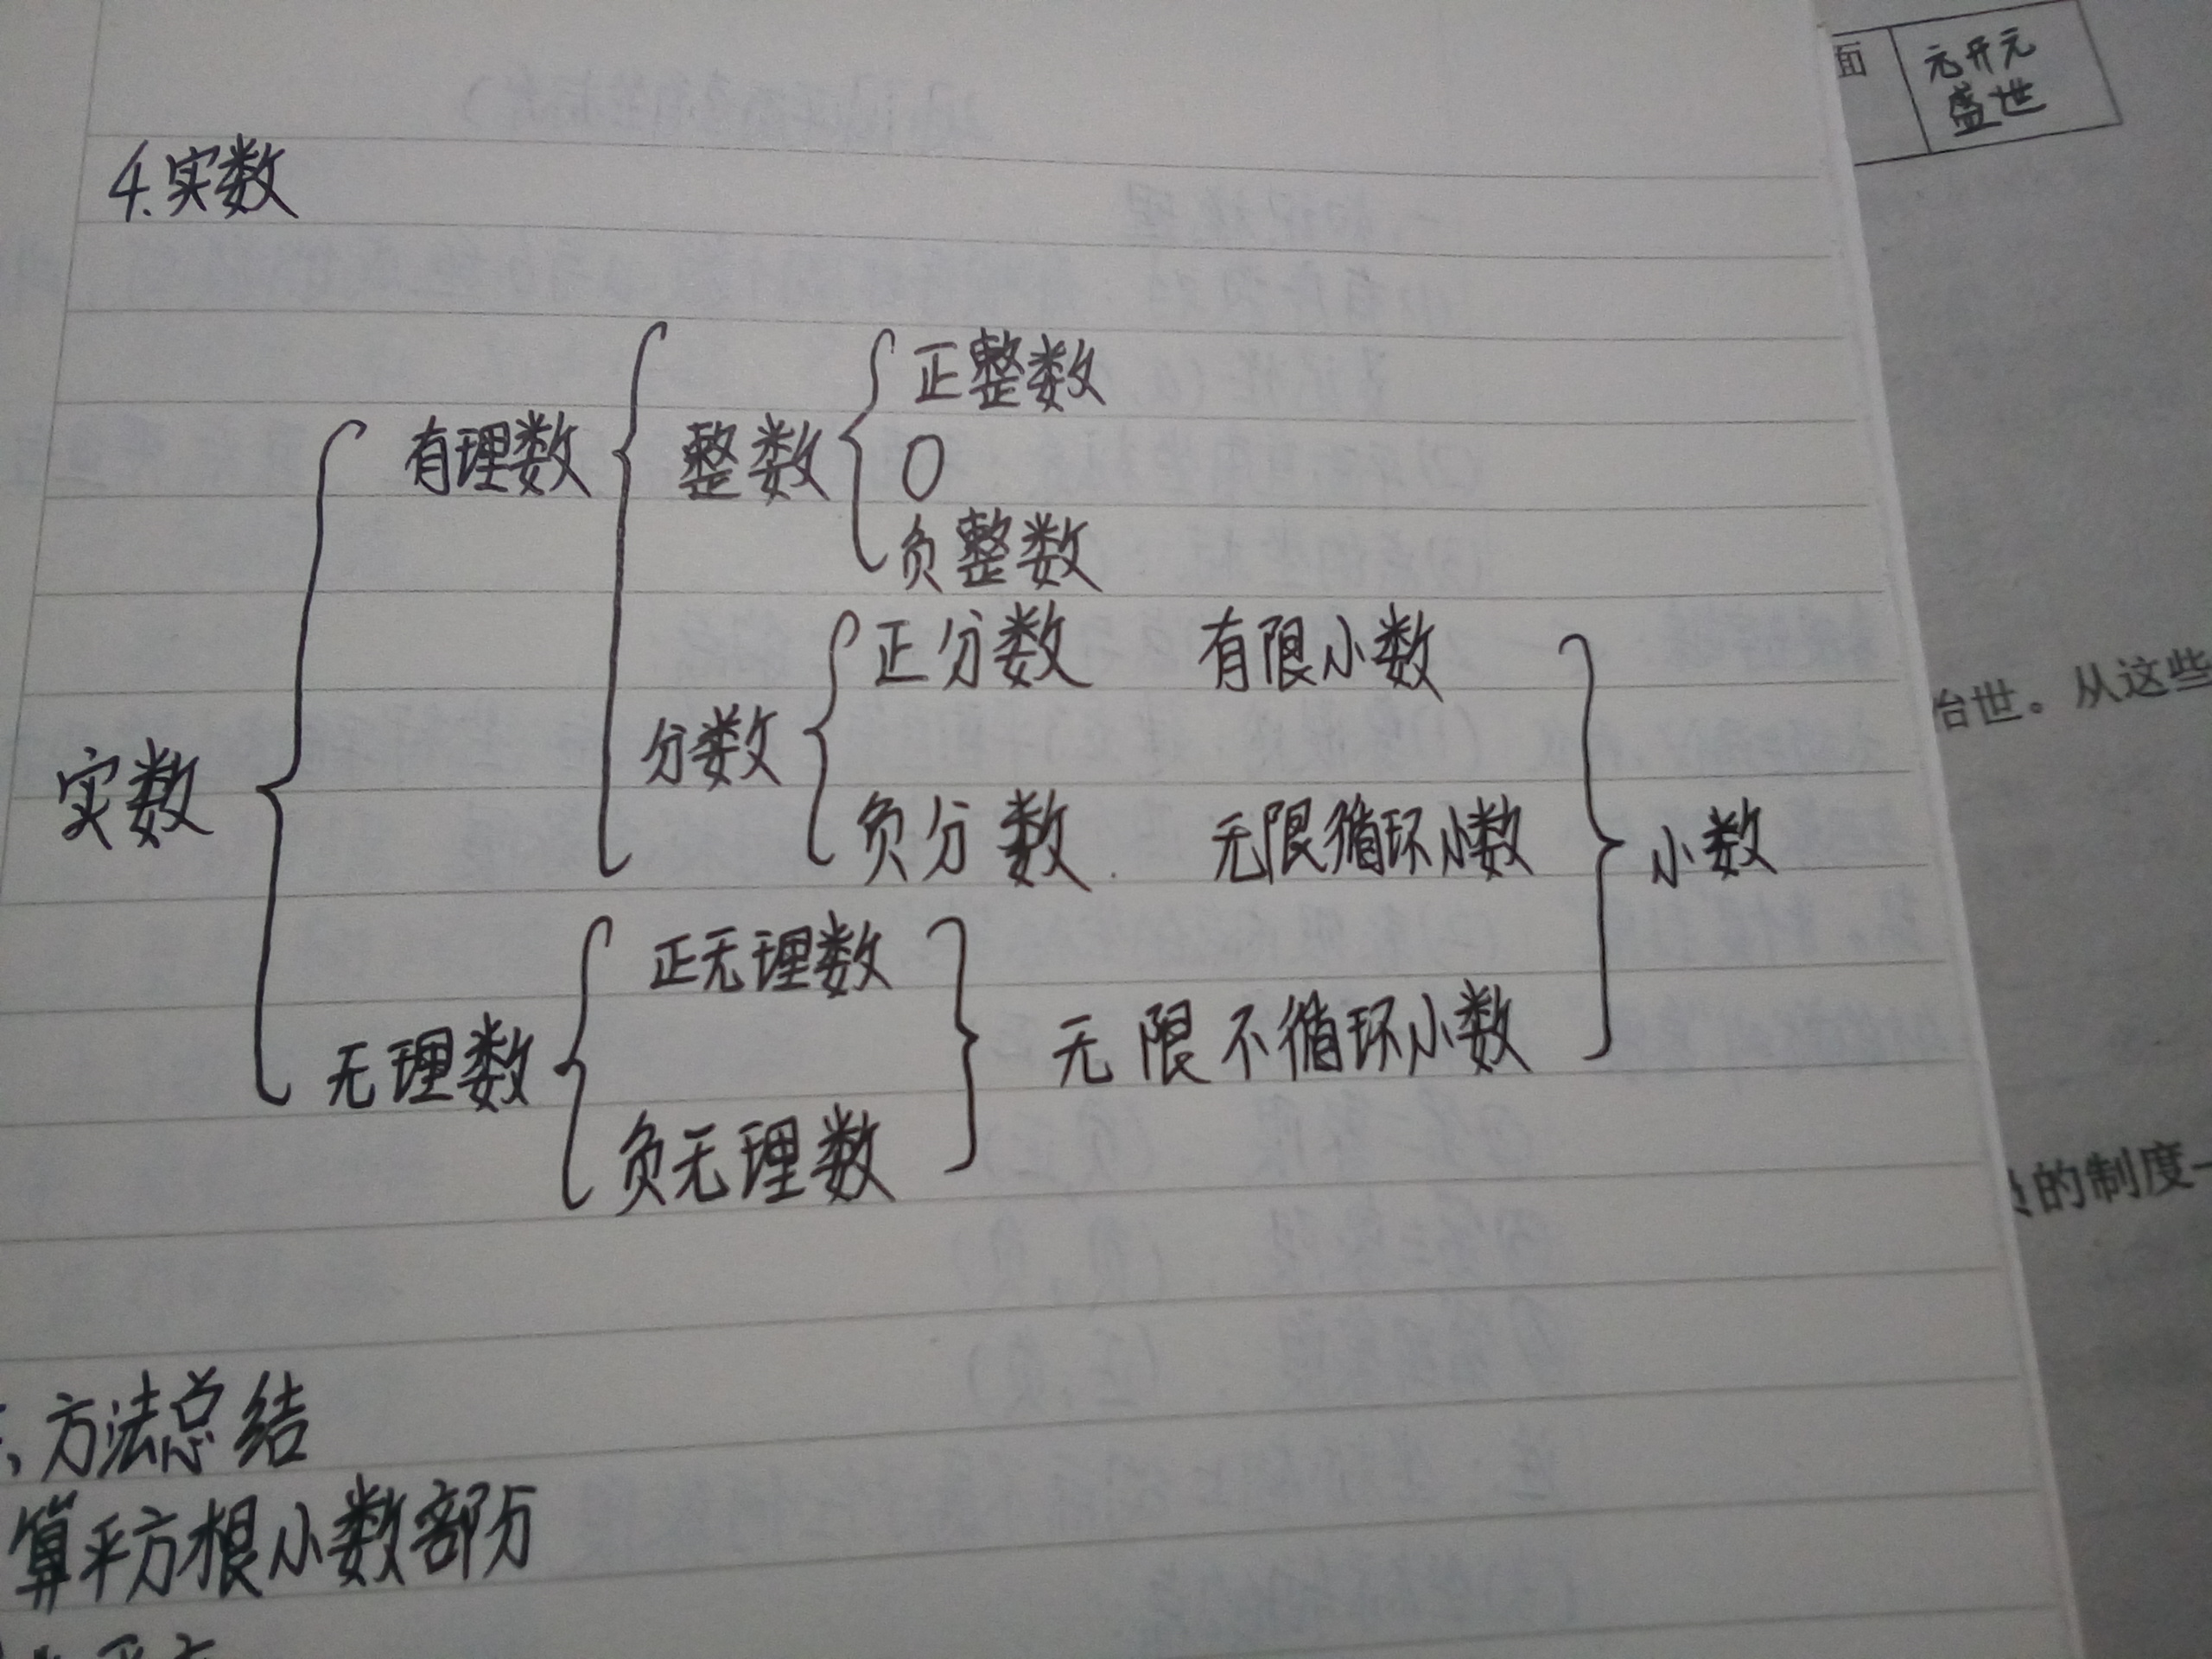 4.实数
正整数
有理数 整数 0
负整数
正分数 有限小数
分数
实数 负分数. 无限循环小数 小数
正无理数
无理数 无限不循环小数
负无理数
、方法总结
算平方根小数部分
面 元开元
盛世
治世。从这些
的制度一